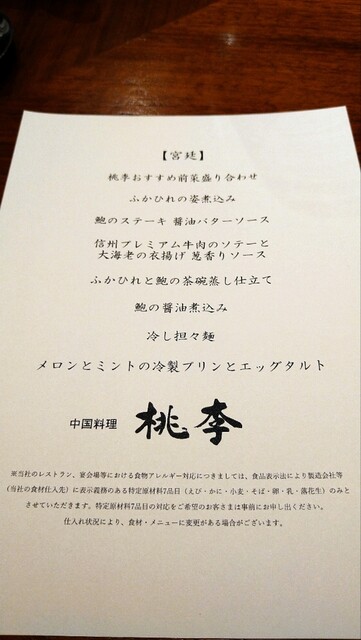 【宮廷】
桃李おすすめ前菜盛り合わせ
ふかひれの姿煮込み
鮑のステーキ 醤油バターソース
信州プレミアム牛肉のソテーと
大海老の衣揚げ 葱香りソース
ふかひれと鮑の茶碗蒸し仕立て
鮑の醤油煮込み
冷し担々麺
メロンとミントの冷製プリンとエッグタルト
中国料理 桃李
※当社のレストラン、宴会場等における食物アレルギー対応につきましては、食品表示法により製造会社等
（当社の食材仕入先）に表示義務のある特定原材料7品目（えび・かに・小麦・そば・卵・乳・落花生）のみと
させていただきます。特定原材料7品目の対応をご希望のお客さまは事前にお申し出ください。
仕入れ状況により、食材・メニューに変更がある場合がございます。